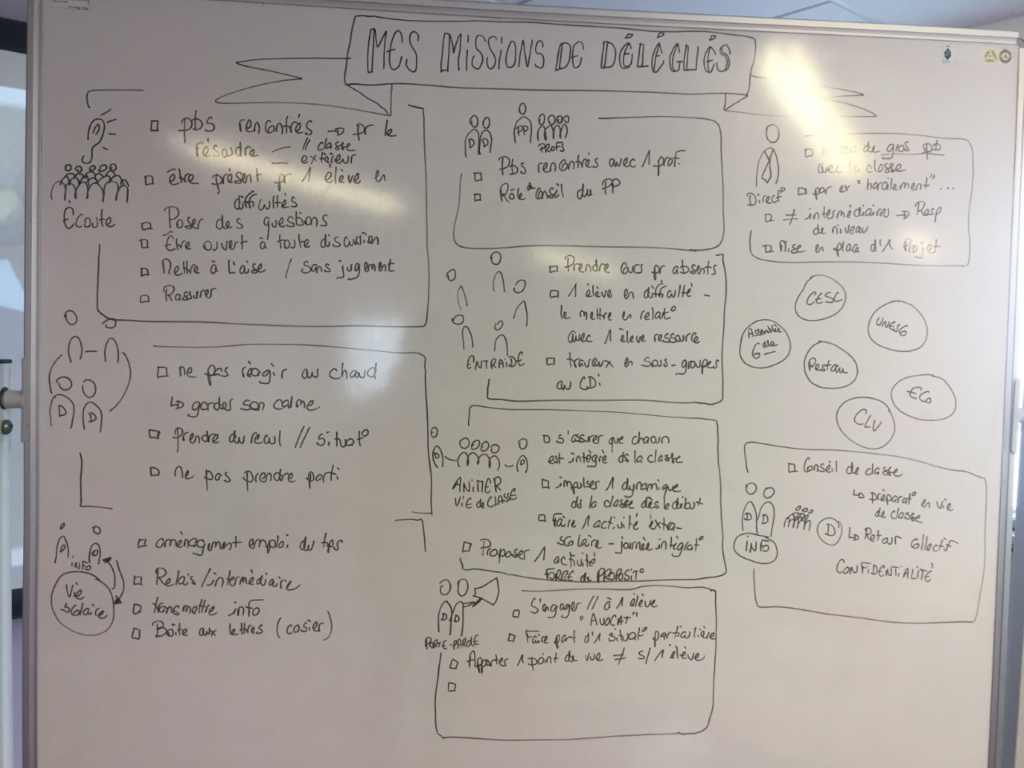 MES MISSIONS DE DÉLÉGUÉS
Écoute
pbs rencontrés → pr le
résoudre — // classe
— extérieur
Être présent pr 1 élève en
difficultés
Poser des questions
Être ouvert à toute discussion
Mettre à l'aise / sans jugement
Rassurer
D D
ne pas réagir au chaud
↳ garder son calme
prendre du recul // situat°
ne pas prendre parti
INFO
Vie
scolaire
aménagement emploi du tps
Relais/intermédiaire
transmettre info
Boîte aux lettres (casier)
D D
PP
PROFS
Pbs rencontrés avec 1 prof.
Rôle conseil du PP
ENTRAIDE
Prendre cours pr absents
1 élève en difficulté -
le mettre en relat°
avec 1 élève ressource
travaux en sous-groupes
au CDi
ANIMER
VIE de CLASSE
s'assurer que chacun
est intégré ds la classe
impulser 1 dynamique
ds la classe dès le début
Faire 1 activité extra-
scolaire - journée intégrat°
Proposer 1
activité
FORCE de PROPOSIT°
D D
PORTE-PAROLE
S'engager // à 1 élève
"AVOCAT"
Faire part d'1 situat° particulière
Apporter 1 point de vue ≠ s/ 1 élève
Direct°
de gros pb
avec le classe
par ex "harcèlement"...
≠ intermédiaires → Resp
de niveau
Mise en place d'1 Projet
CESC
Assemblée
6ème
UNESCO
Restau
EG
CLV
D D
INFO
D
Conseil de classe
↳ préparat° en vie
de classe
↳ Retour collectif
CONFIDENTIALITÉ